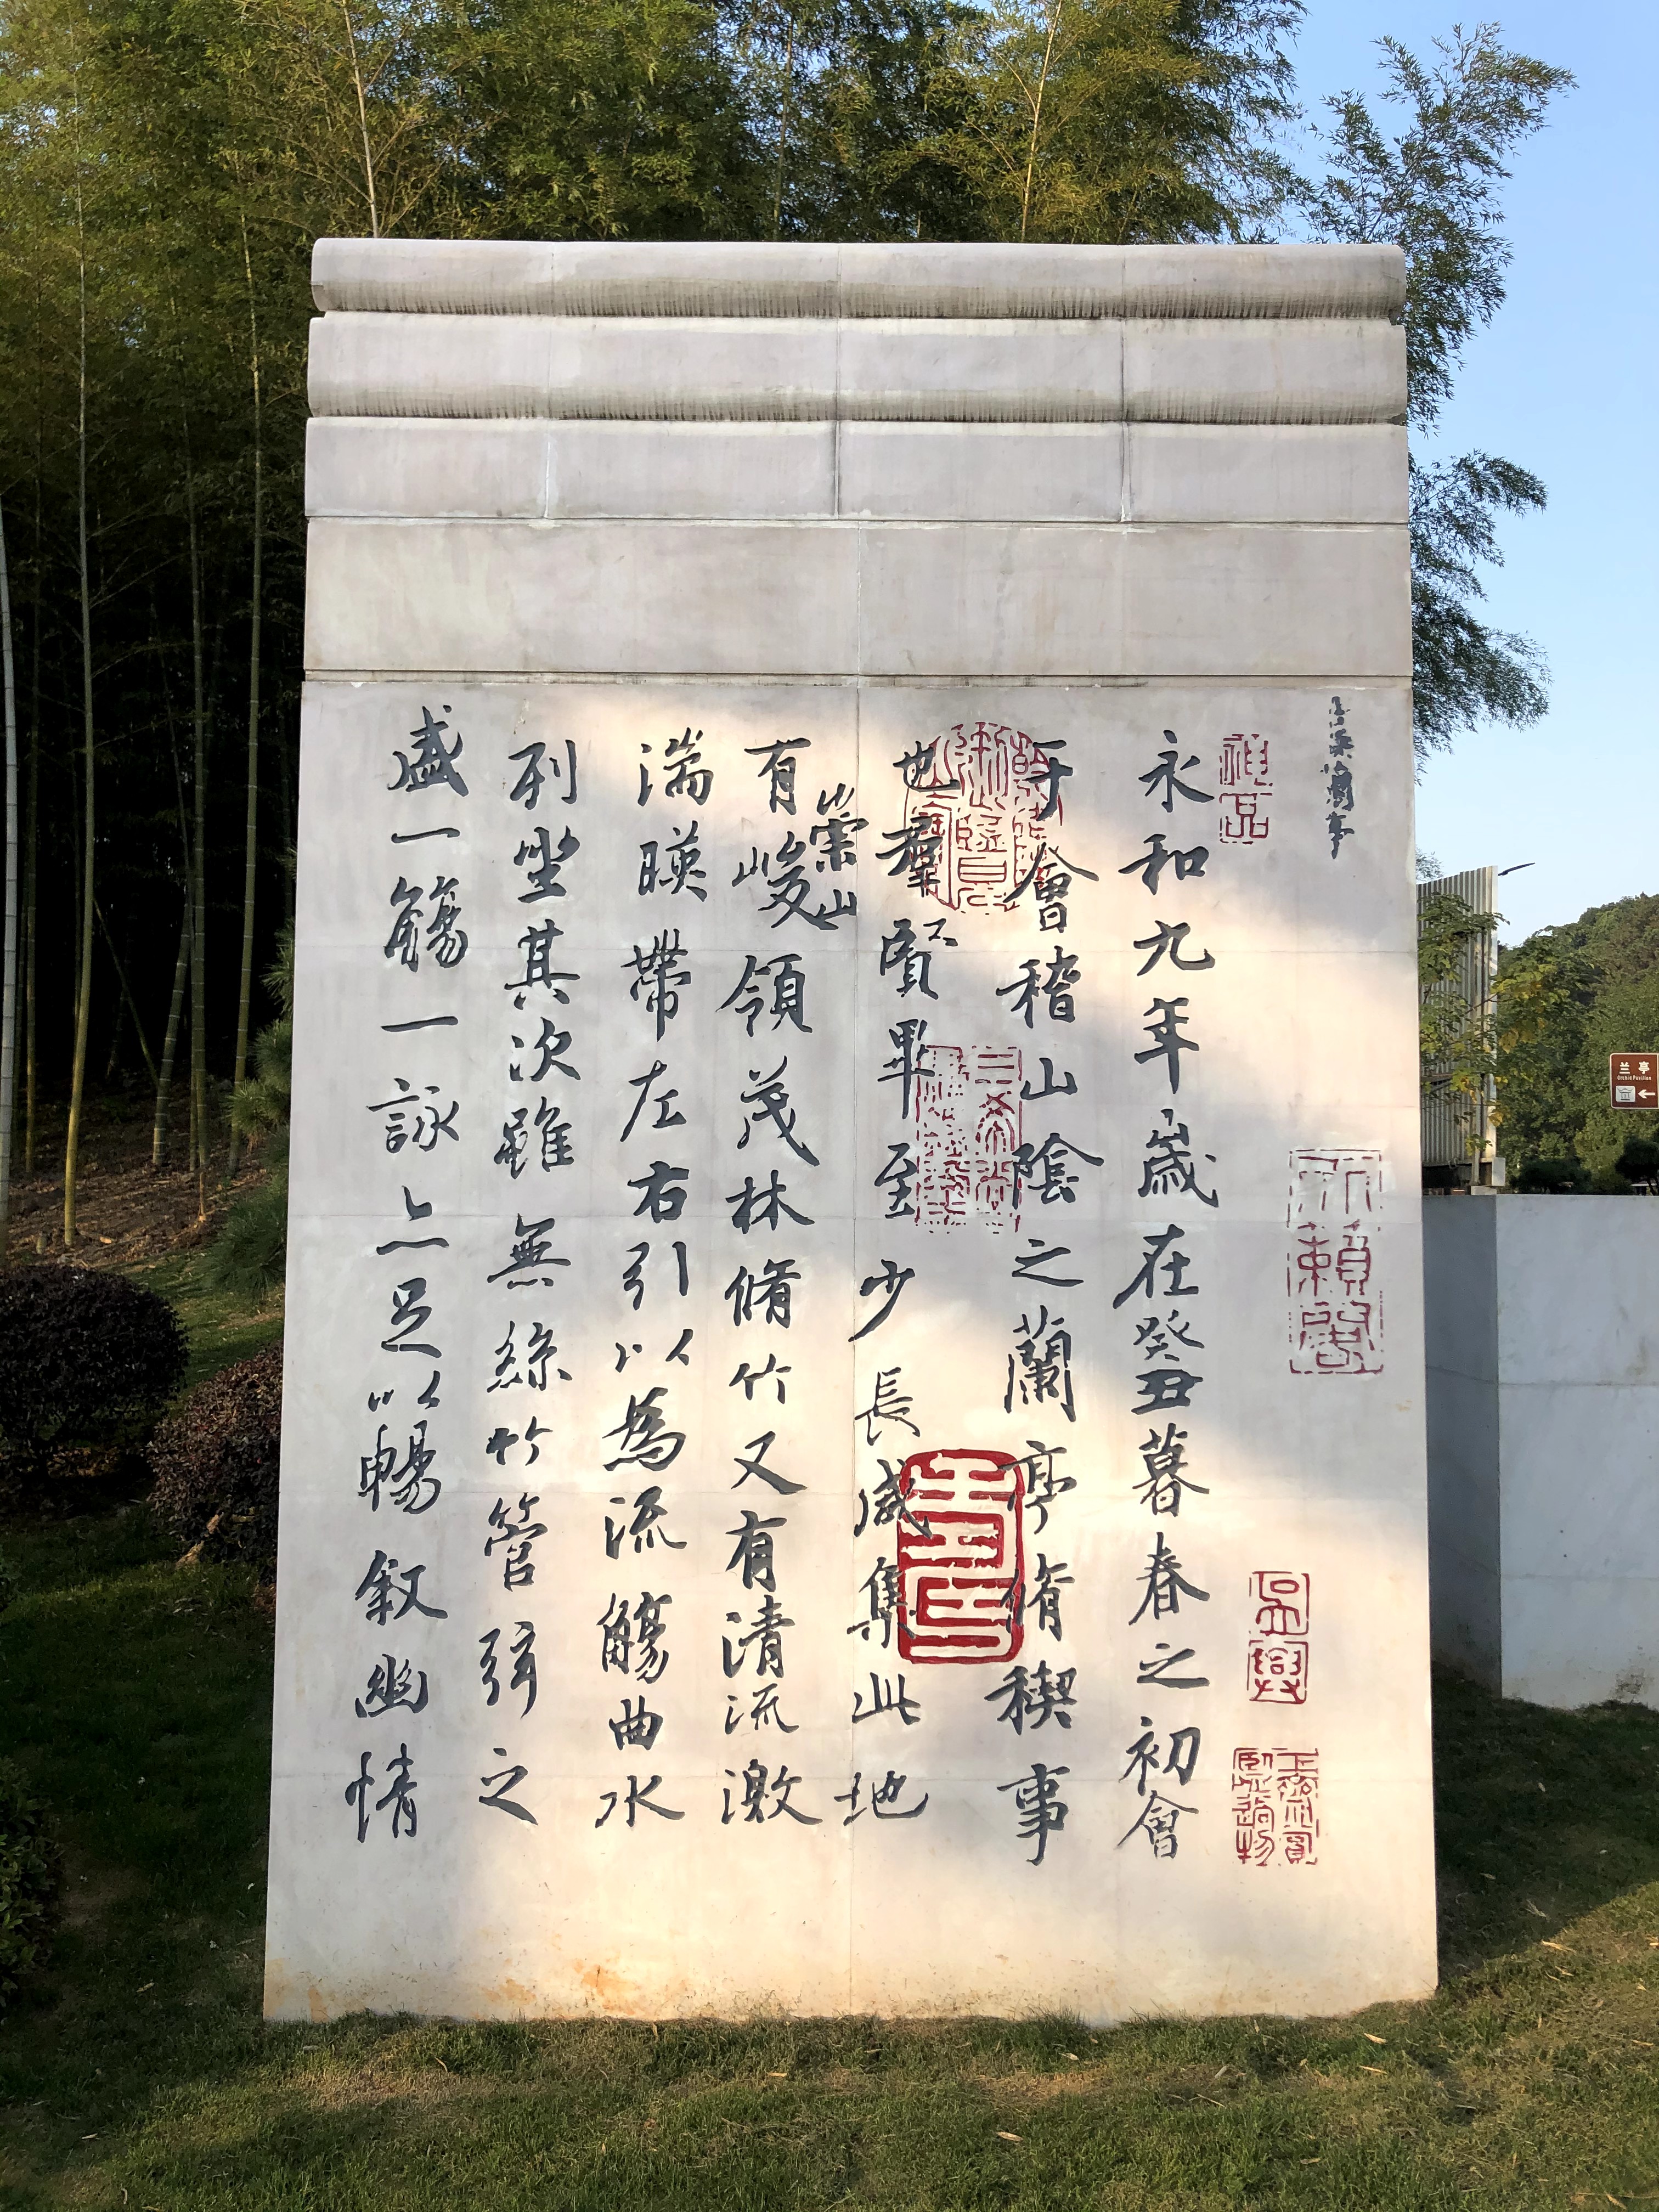 永和九年歲在癸丑暮春之初會
于會稽山陰之蘭亭脩稧事
也羣賢畢至少長咸集此地
有崇山峻領茂林脩竹又有清流激
湍暎帶左右引以為流觴曲水
列坐其次雖無絲竹管弦之
盛一觴一詠亦足以暢叙幽情
神品
所賴閣
吳興
蘭亭
兰亭
Orchid Pavilion